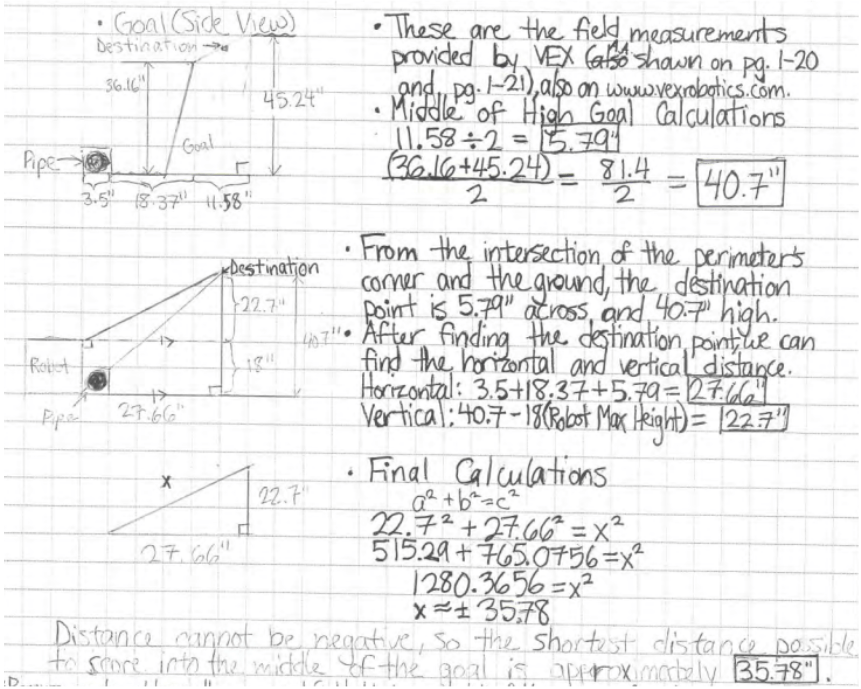 • Goal (Side View)
Destination→
36.16"
45.24"
Goal
Pipe→
3.5" 18.37" 11.58"
• These are the field measurements
provided by VEX (also shown on pg. 1-20
and pg. 1-21), also on www.vexrobotics.com.
• Middle of High Goal Calculations
11.58 ÷ 2 = 5.79"
(36.16+45.24)/2 = 81.4/2 = 40.7"
Destination
22.7"
40.7"
18"
Robot
Pipe
27.66"
• From the intersection of the perimeter's
corner and the ground, the destination
point is 5.79" across and 40.7" high.
• After finding the destination point, we can
find the horizontal and vertical distance.
Horizontal: 3.5+18.37+5.79= 27.66"
Vertical: 40.7-18(Robot Max Height)= 22.7"
x
22.7"
27.66"
• Final Calculations
a²+b²=c²
22.7² + 27.66² = x²
515.29 + 765.0756 = x²
1280.3656 = x²
x ≈ ± 35.78
Distance cannot be negative, so the shortest distance possible
to score into the middle of the goal is approximately 35.78".